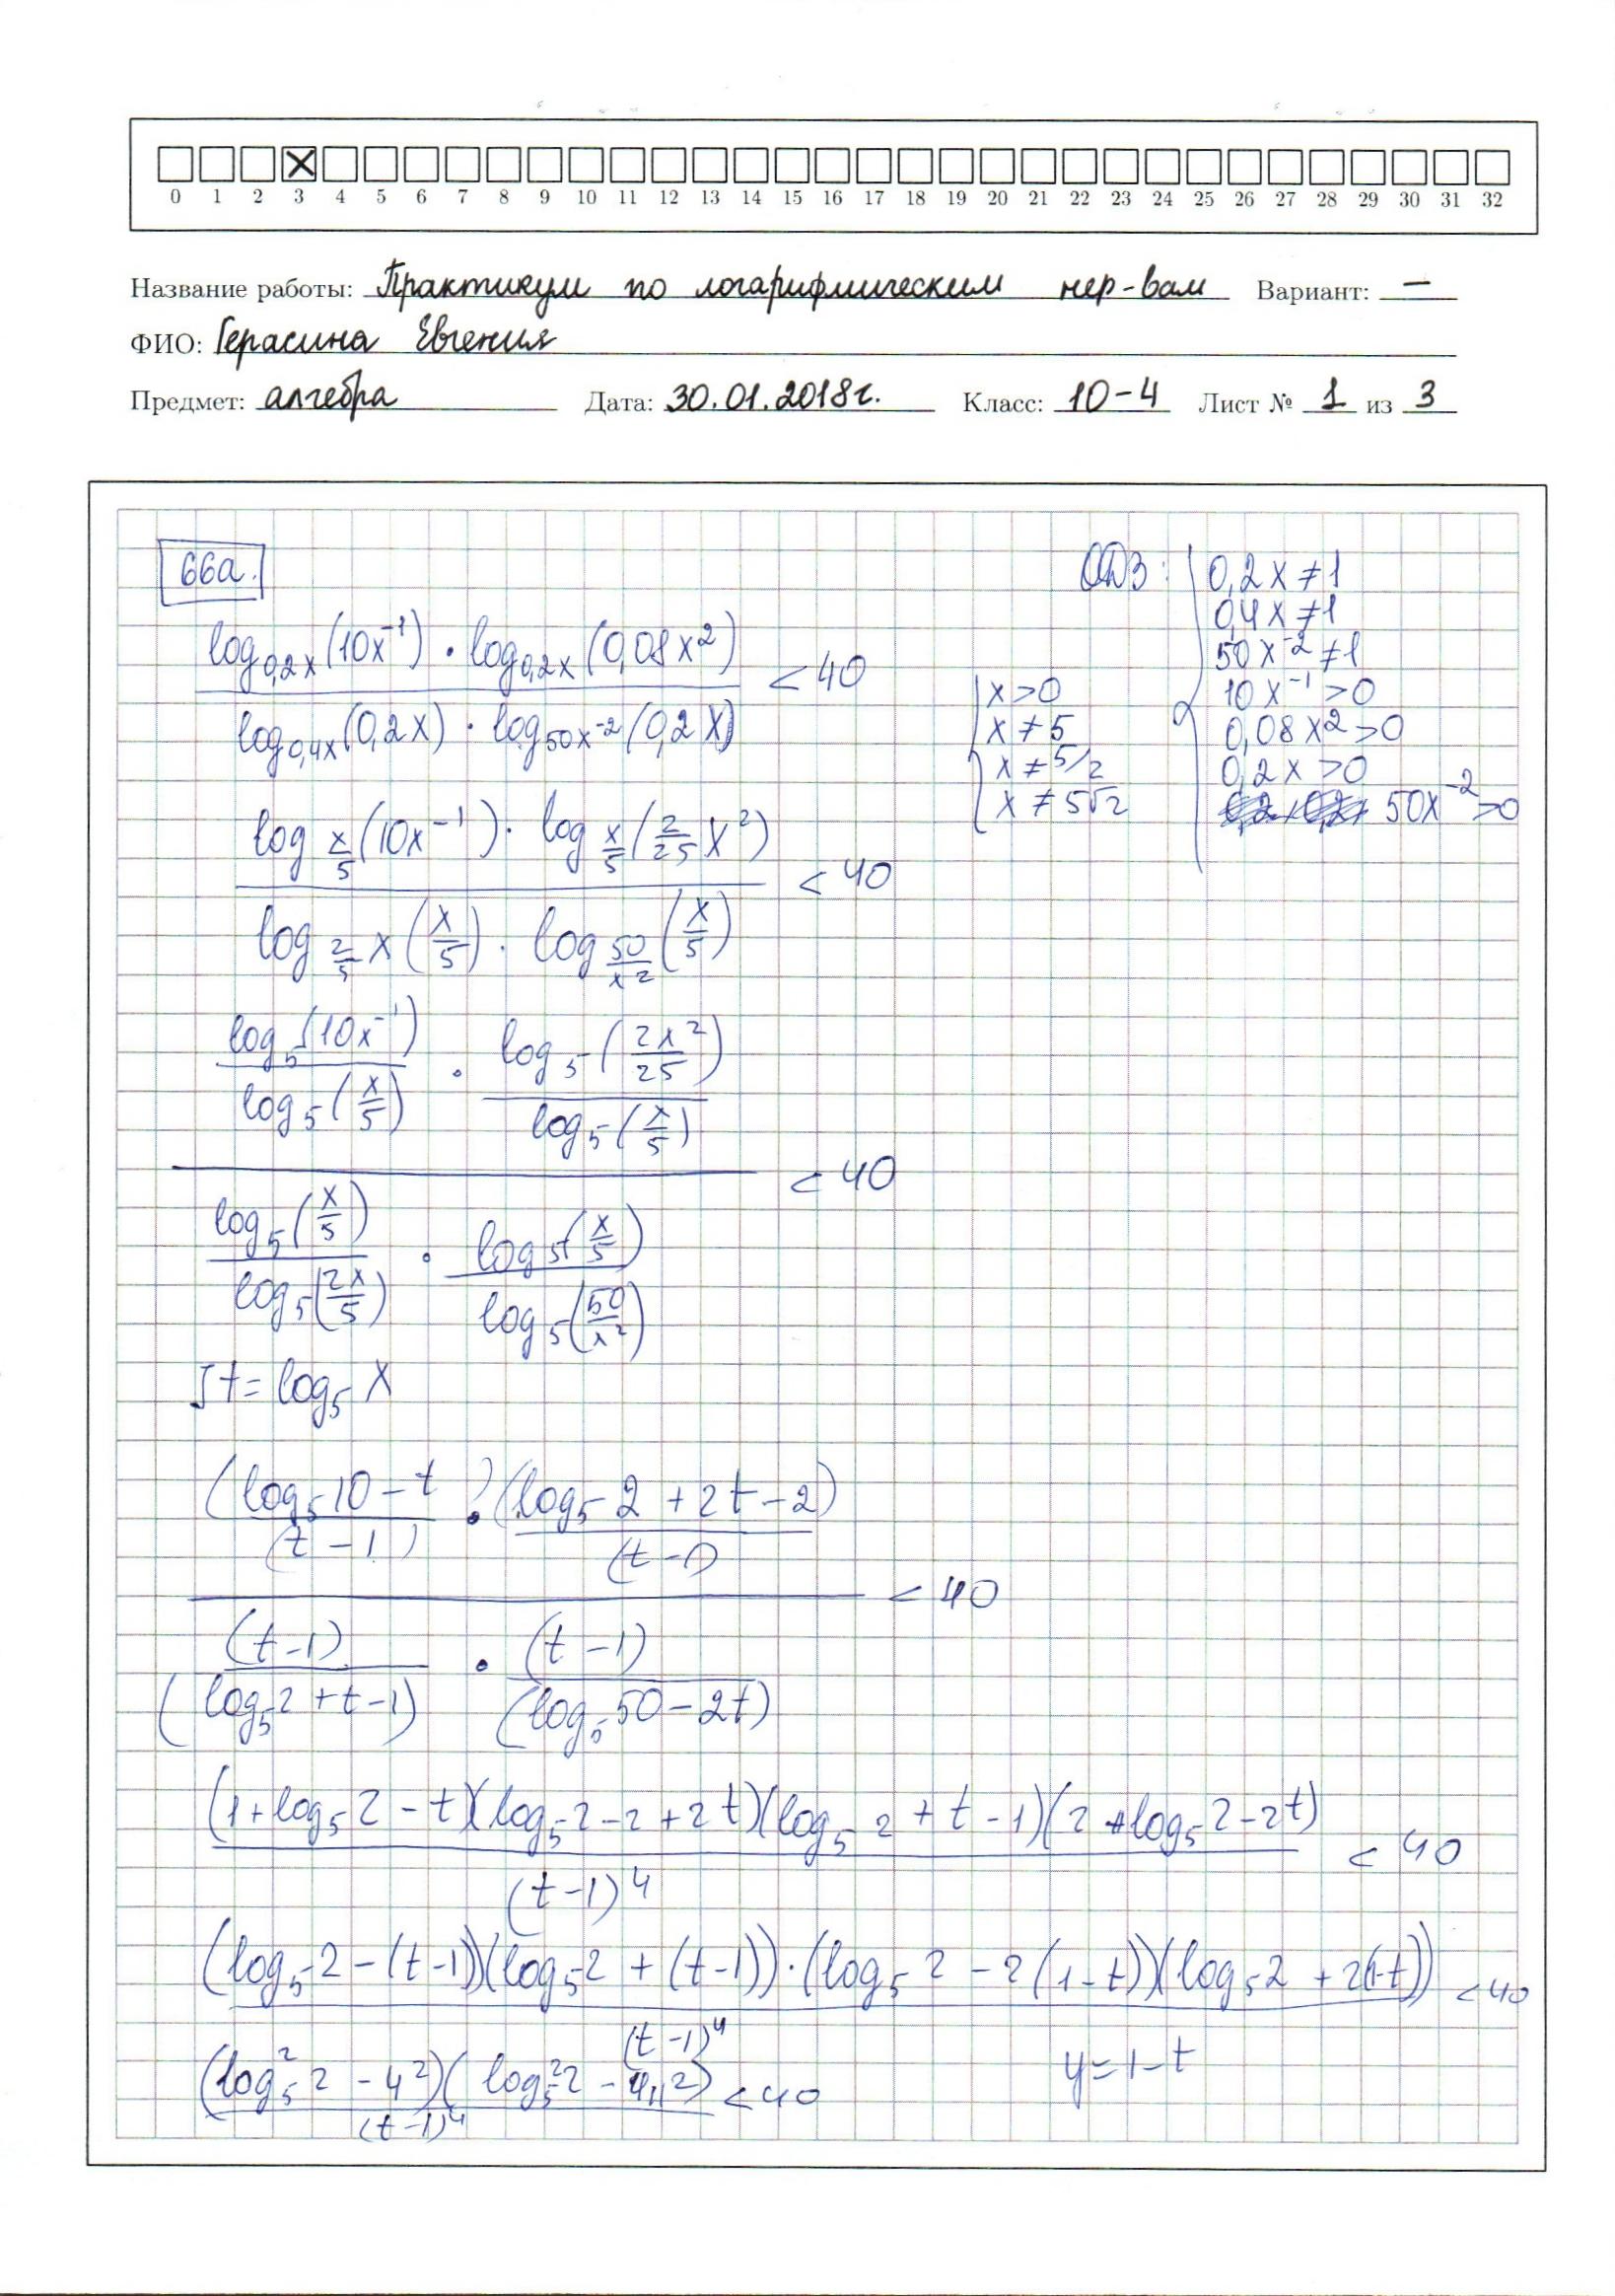 0 1 2 3 4 5 6 7 8 9 10 11 12 13 14 15 16 17 18 19 20 21 22 23 24 25 26 27 28 29 30 31 32
Название работы: Практикум по логарифмическим нер-вам Вариант: —
ФИО: Герасина Евгения
Предмет: алгебра Дата: 30.01.2018г. Класс: 10-4 Лист № 1 из 3
66а.
ОДЗ: 0,2x ≠ 1
0,4x ≠ 1
50x⁻² ≠ 1
10x⁻¹ > 0
0,08x² > 0
0,2x > 0
50x⁻² > 0
x > 0
x ≠ 5
x ≠ 5/2
x ≠ 5√2
log₀,₂ₓ(10x⁻¹) · log₀,₂ₓ(0,08x²)
< 40
log₀,₄ₓ(0,2x) · log_{50x⁻²}(0,2x)
log_{x/5}(10x⁻¹) · log_{x/5}(2/25 x²)
< 40
log_{2/5 x}(x/5) · log_{50/x²}(x/5)
log₅(10x⁻¹) / log₅(x/5) · log₅(2x²/25) / log₅(x/5)
< 40
log₅(x/5) / log₅(2x/5) · log₅(x/5) / log₅(50/x²)
] t = log₅ x
(log₅10 - t) / (t - 1) · (log₅2 + 2t - 2) / (t - 1)
< 40
(t - 1) / (log₅2 + t - 1) · (t - 1) / (log₅50 - 2t)
(1 + log₅2 - t)(log₅2 - 2 + 2t)(log₅2 + t - 1)(2 + log₅2 - 2t)
< 40
(t - 1)⁴
(log₅2 - (t - 1))(log₅2 + (t - 1)) · (log₅2 - 2(1 - t))(log₅2 + 2(1 - t))
< 40
(t - 1)⁴
y = 1 - t
(log₅²2 - y²)(log₅²2 - 4y²)
< 40
(t - 1)⁴